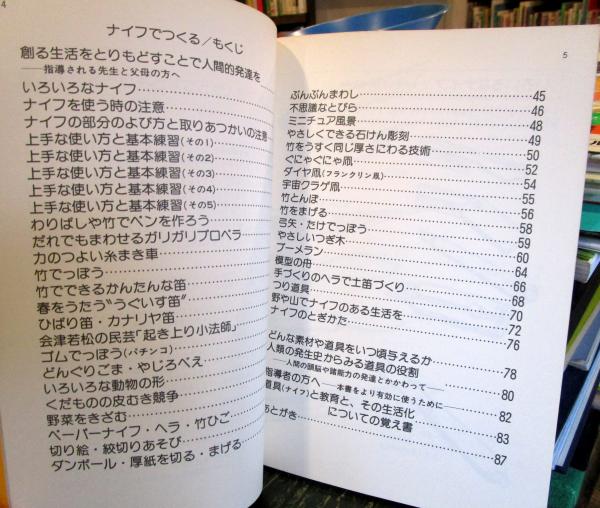 4
ナイフでつくる/もくじ
創る生活をとりもどすことで人間的発達を
──指導される先生と父母の方へ
いろいろなナイフ
ナイフを使う時の注意
ナイフの部分のよび方と取りあつかいの注意
上手な使い方と基本練習(その1)
上手な使い方と基本練習(その2)
上手な使い方と基本練習(その3)
上手な使い方と基本練習(その4)
上手な使い方と基本練習(その5)
わりばしや竹でペンを作ろう
だれでもまわせるガリガリプロペラ
力のつよい糸まき車
竹でっぽう
竹でできるかんたんな笛
春をうたう“うぐいす笛”
ひばり笛・カナリヤ笛
会津若松の民芸「起き上り小法師」
ゴムでっぽう(パチンコ)
どんぐりごま・やじろべえ
いろいろな動物の形
くだものの皮むき競争
野菜をきざむ
ペーパーナイフ・ヘラ・竹ひご
切り絵・絞切りあそび
ダンボール・厚紙を切る・まげる
5
ぶんぶんまわし……45
不思議なとびら……46
ミニチュア風景……48
やさしくできる石けん彫刻……49
竹をうすく同じ厚さにわる技術……50
ぐにゃぐにゃ凧……52
ダイヤ凧(フランクリン凧)……54
宇宙クラゲ凧……55
竹とんぼ……56
竹をまげる……58
弓矢・たけでっぽう……59
やさしいつぎ木……60
ブーメラン……64
模型の舟……66
手づくりのヘラで土笛づくり……68
つり道具……70
野や山でナイフのある生活を……72
ナイフのとぎかた……76
どんな素材や道具をいつ頃与えるか……78
人類の発生史からみる道具の役割
──人間の頭脳や諸能力の発達とかかわって──……80
指導者の方へ──本書をより有効に使うために──……82
道具(ナイフ)と教育と、その生活化
についての覚え書……83
あとがき……87